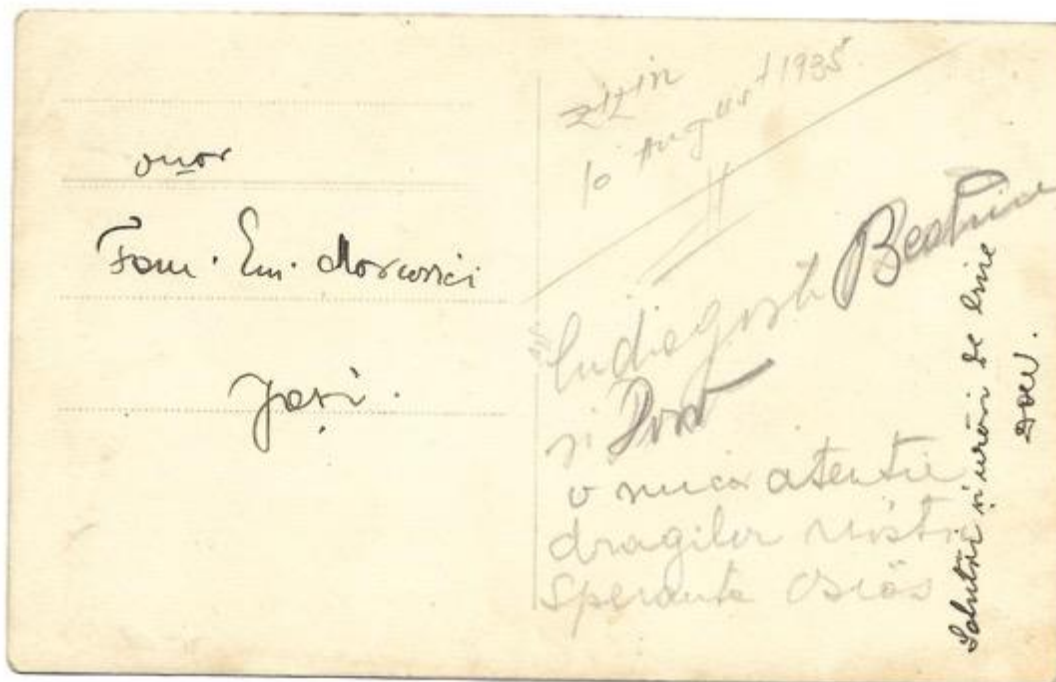 onor
Fam. Em. Marcovici
Jași.
Zizin
10 August 1935
Cu dragoste Beatrice
și
o mica atentie
dragilor
Sperante
Salutări și urări de bine